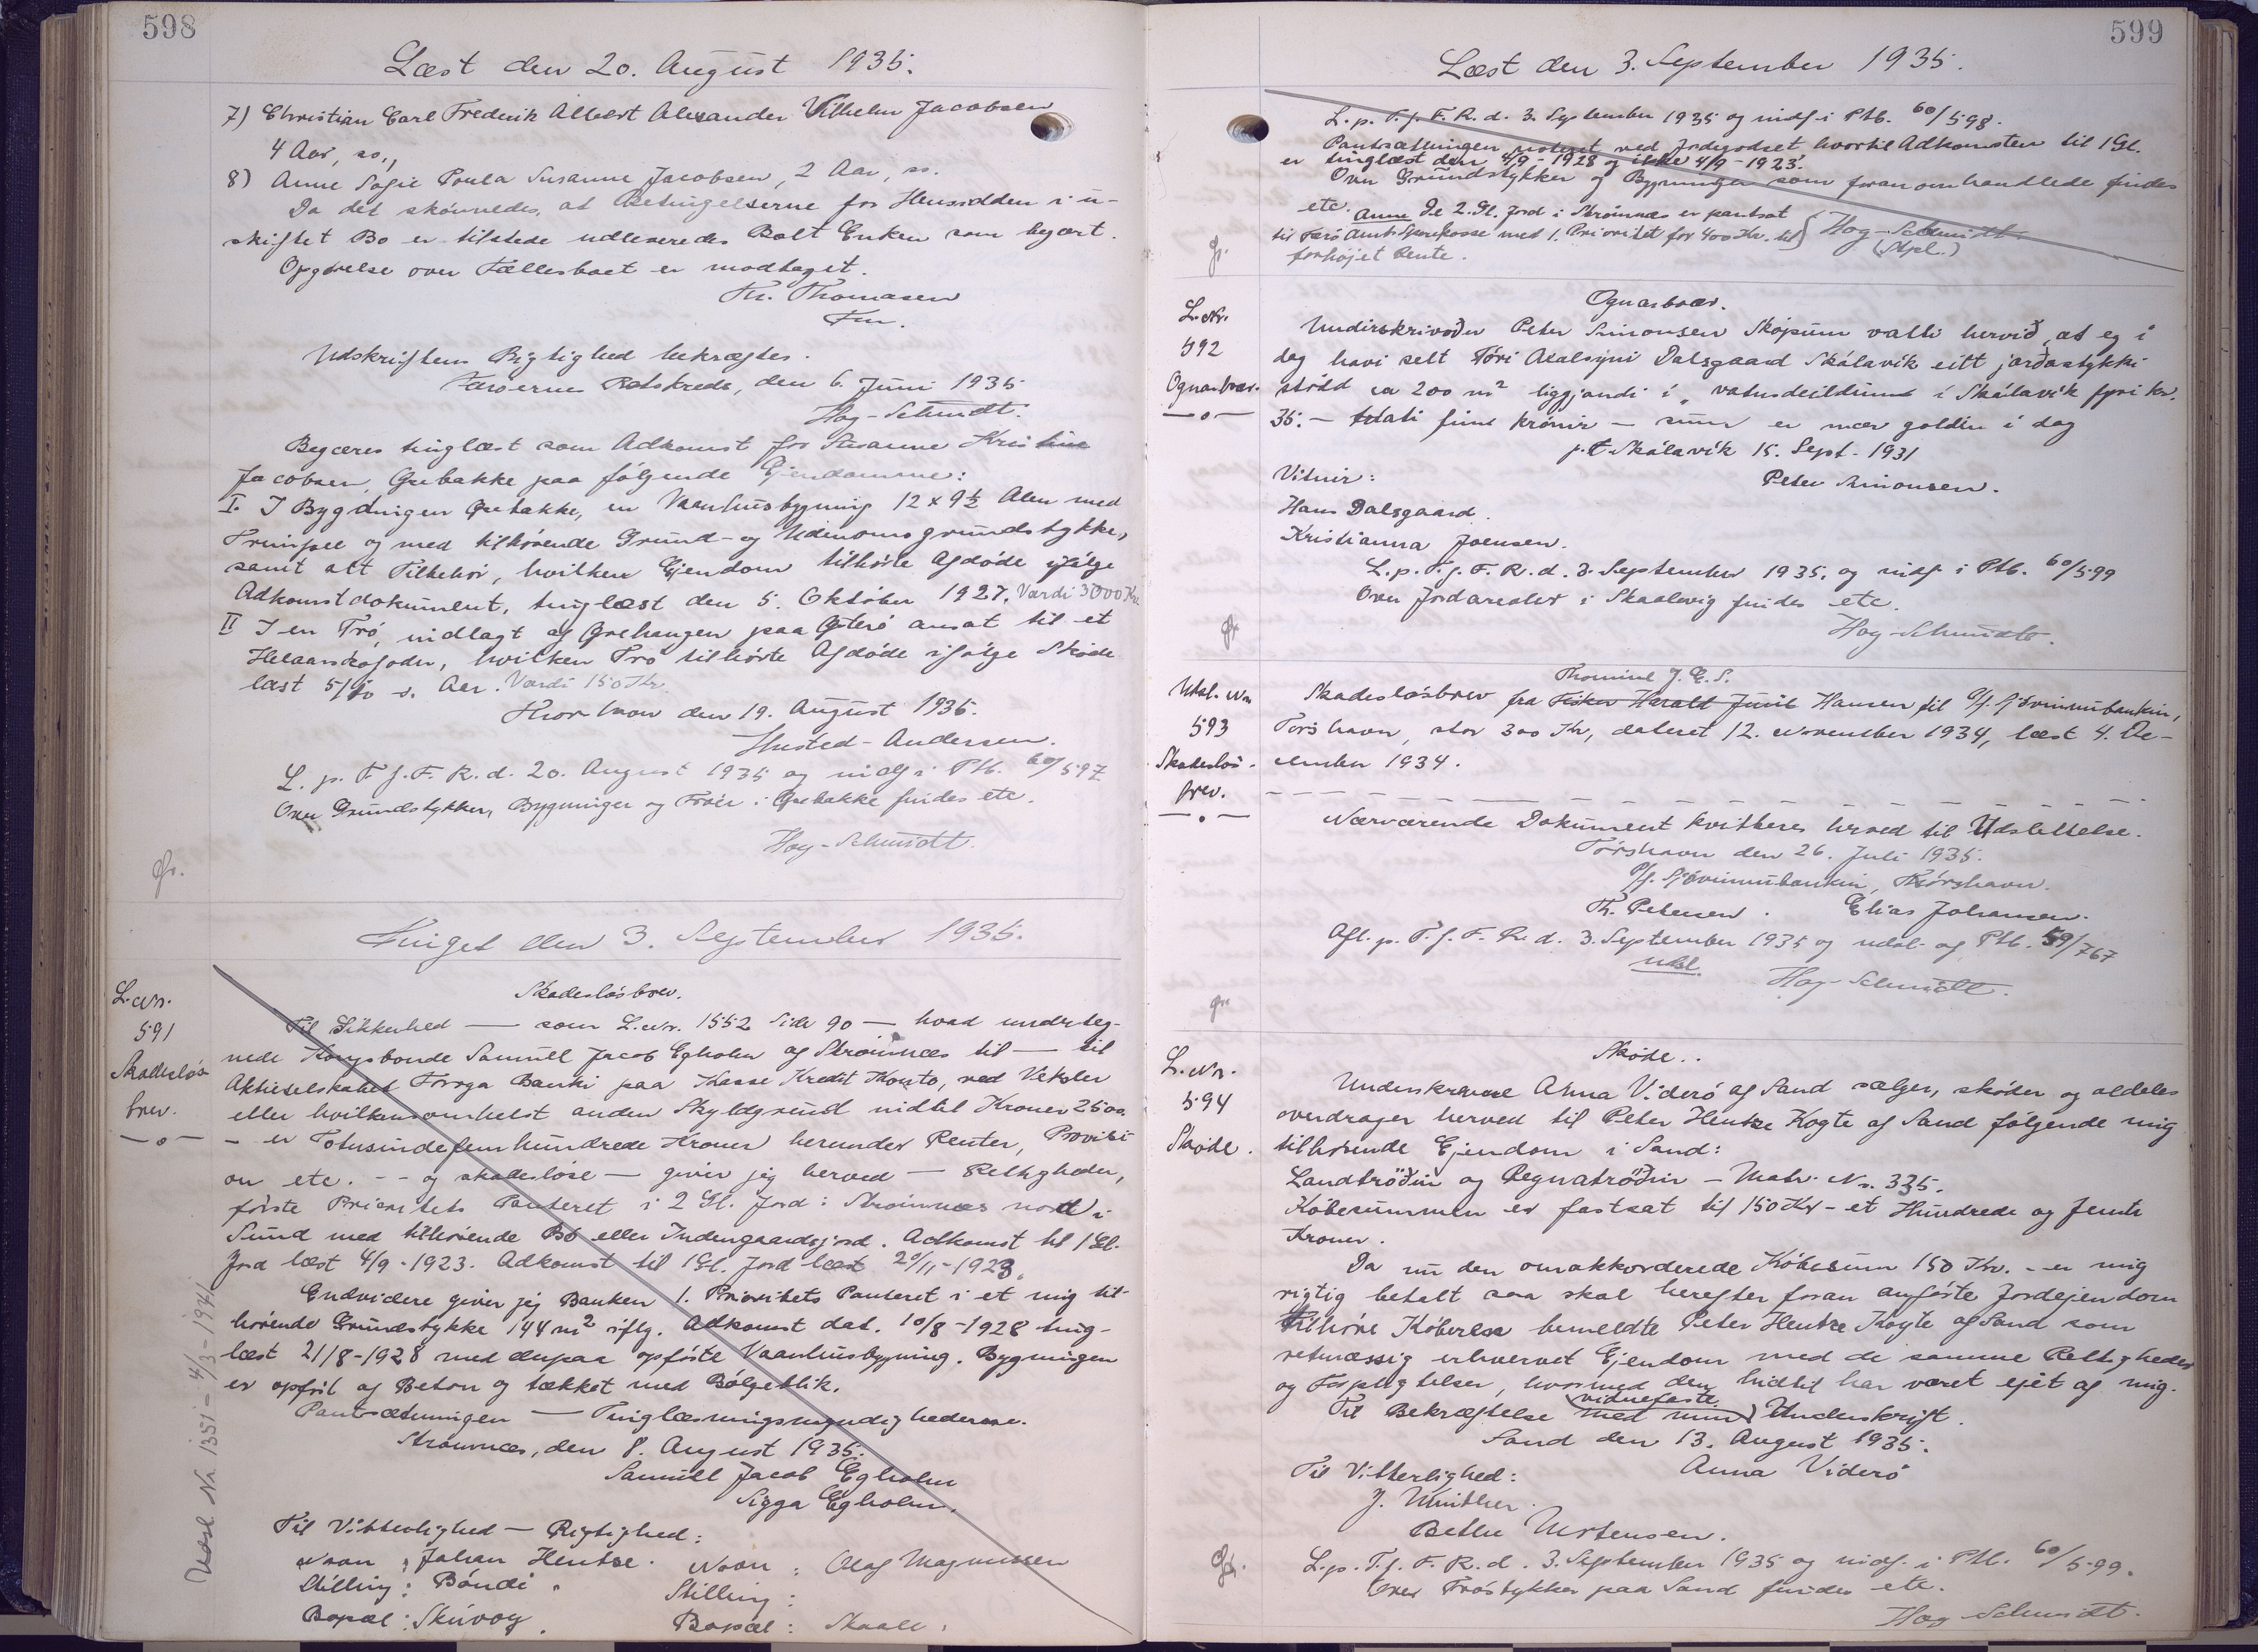 598
Læst den 20. August 1935.
7) Christian Carl Frederik Albert Alexander Vilhelm Jacobsen
4 Aar, ss.,
8) Anne Sofie Poula Susanne Jacobsen, 2 Aar, ss.
Da det skønnedes, at Betingelserne for Hensidden i u-
skiftet Bo er tilstede udleveredes Boet Enken som begært.
Opgørelse over Fællesboet er modtaget.
Th. Thomasen
Fm.
Udskriftens Rigtighed bekræftes.
Færøernes Retskreds, den 6. Juni 1935
Høg-Schmidt.
Begæres tinglæst som Adkomst for Susanne Kristine
Jacobsen, Grebakke paa følgende Ejendomme:
I. I Bygdingen Grebakke, en Vaanhusbygning 12 x 9½ Alen med
og med tilhørende Grund- og Udenomsgrundstykke,
samt alt Tilbehør, hvilken Ejendom tilhørte Afdøde ifølge
Adkomstdokument, tinglæst den 5. Oktober 1927. Værdi 3000 Kr.
II I en Trø, indlagt af Grehaugen paa Østerø ansat til et
Helaarskofoder, hvilken Trø tilhørte Afdøde ifølge Skøde
læst 5/10 s. Aar. Værdi 150 Kr.
Thorshavn den 19. August 1935.
Husted-Andersen.
L. p. T. f. F. R. d. 20. August 1935 og indf. i Ptb. 60/597
Over Grundstykker, Bygninger og Trøer i Grebakke findes etc.
Høg-Schmidt.
Gr.
Tinget den 3. September 1935.
L. Nr.
591
Skadesløs-
brev.
—o—
Skadesløsbrev.
Til Sikkerhed — som L.Nr. 1552 Side 90 — hvad underteg-
nede Kongsbonde Samuell Jacob Egholm af Strømnæs til — til
Aktieselskabet Føroya Banki paa Kasse Kredit Konto, ved Veksler
eller hvilkensomhelst anden Skyldgrund indtil Kroner 2500.
— er Totusindefemhundrede Kroner herunder Renter, Provisi-
on etc. -- og skadesløse — giver jeg herved — Rettigheder,
første Prioritets Panteret i 2 Gl. Jord i Strømnæs nord i
Sund med tilhørende Bø eller Indengaardsjord. Adkomst til 1 Gl.
Jord læst 4/9-1923. Adkomst til 1 Gl. Jord læst 20/11-1923.
Endvidere giver jeg Banken 1. Prioritets Panteret i et mig til-
hørende Grundstykke 144 m² iflg. Adkomst dat. 10/8-1928 ting-
læst 21/8-1928 med derpaa opførte Vaanhusbygning. Bygningen
er opført af Beton og tækket med Bølgeblik.
Pantsætningen — Tinglæsningsmyndighederne.
Strømnæs, den 8. August 1935.
Samuell Jacob Egholm
Sigga Egholm.
Til Vitterlighed — Rigtighed:
Navn: Johan Hentze. Navn: Olaf Magnussen
Stilling: Bóndi. Stilling:
Bopæl: Skúvoy. Bopæl: Skaale.
Udsl. Nr. 1351 — 4/3-1941
599
Læst den 3. September 1935.
L. p. T. f. F. R. d. 3. September 1935 og indf. i Ptb. 60/598.
Pantsætningen noteret ved Jordegodset hvortil Adkomsten til 1 Gl.
er tinglæst den 4/9-1928 og ikke 4/9-1923.
Over Grundstykker og Bygninger som foran omhandlede findes
etc. Anm De 2. Gl. Jord i Strømnæs er pantsat
til Færø Amts Sparekasse med 1. Prioritet for 400 Kr. til
forhøjet Rente.
Høg-Schmidt
(Stpl.)
Gr.
L. Nr.
592
Ognarbræv.
—o—
Ognarbræv.
Undirskrivaðu Peter Simonsen Skopun vatti hervið, at eg í
dag havi selt Tóri Dalsgaard Skálavík eitt jarðarstykki
stódd ca 200 m² liggjandi í í Skálavík fyri kr.
35.— fimt krónir — sum er mær goldin í dag
p.t. Skálavík 15. Sept. 1931
Vitnir: Peter Simonsen.
Hans Dalsgaard.
Kristianna Joensen.
L. p. T. f. F. R. d. 3. September 1935, og indf. i Ptb. 60/599
Over Jordarealer i Skaalevig findes etc.
Høg-Schmidt.
Gr.
Udsl. Nr.
593
Skadesløs-
brev.
—o—
Thomine J. E. S.
Skadesløsbrev fra Fisker Harald Juul Hansen til A/f. Sjóvinnubankin,
Torshavn, stor 300 Kr, dateret 12. November 1934, læst 4. De-
cember 1934.
Nærværende Dokument kvitteres herved til Udslettelse.
Tórshavn den 26. Juli 1935.
P/f. Sjóvinnubankin, Tórshavn.
Th. Petersen. Elias Johansen.
Afl. p. T. f. F. R. d. 3. September 1935 og udsl. af Ptb. 59/767
udsl.
Høg-Schmidt.
Gr.
L. Nr.
594
Skøde.
Skøde.
Underskrevne Anna Viderø af Sand sælger, skøder og aldeles
overdrager herved til Peter Hentze Kogte af Sand følgende mig
tilhørende Ejendom i Sand:
Landtrøðin og Regnatrøðin — Matr. Nr. 335.
Købesummen er fastsat til 150 Kr — et Hundrede og femti
Kroner.
Da nu den omakkorderede Købesum 150 Kr. — er mig
rigtig betalt saa skal herefter foran anførte Jordejendom
tilhøre Køberen bemeldte Peter Hentze Kogte af Sand som
retmæssig erhvervet Ejendom med de samme Rettigheder
og Forpligtelser, hvormed den hidtil har været ejet af mig.
Til Bekræftelse med min vidnefaste Underskrift.
Sand den 13. August 1935.
Til Vitterlighed: Anna Viderø
J. Winther.
Bethe Mortensen.
L. p. T. f. F. R. d. 3. September 1935 og indf. i Ptb. 60/599.
Over Trøstykker paa Sand findes etc.
Høg-Schmidt.
Gr.